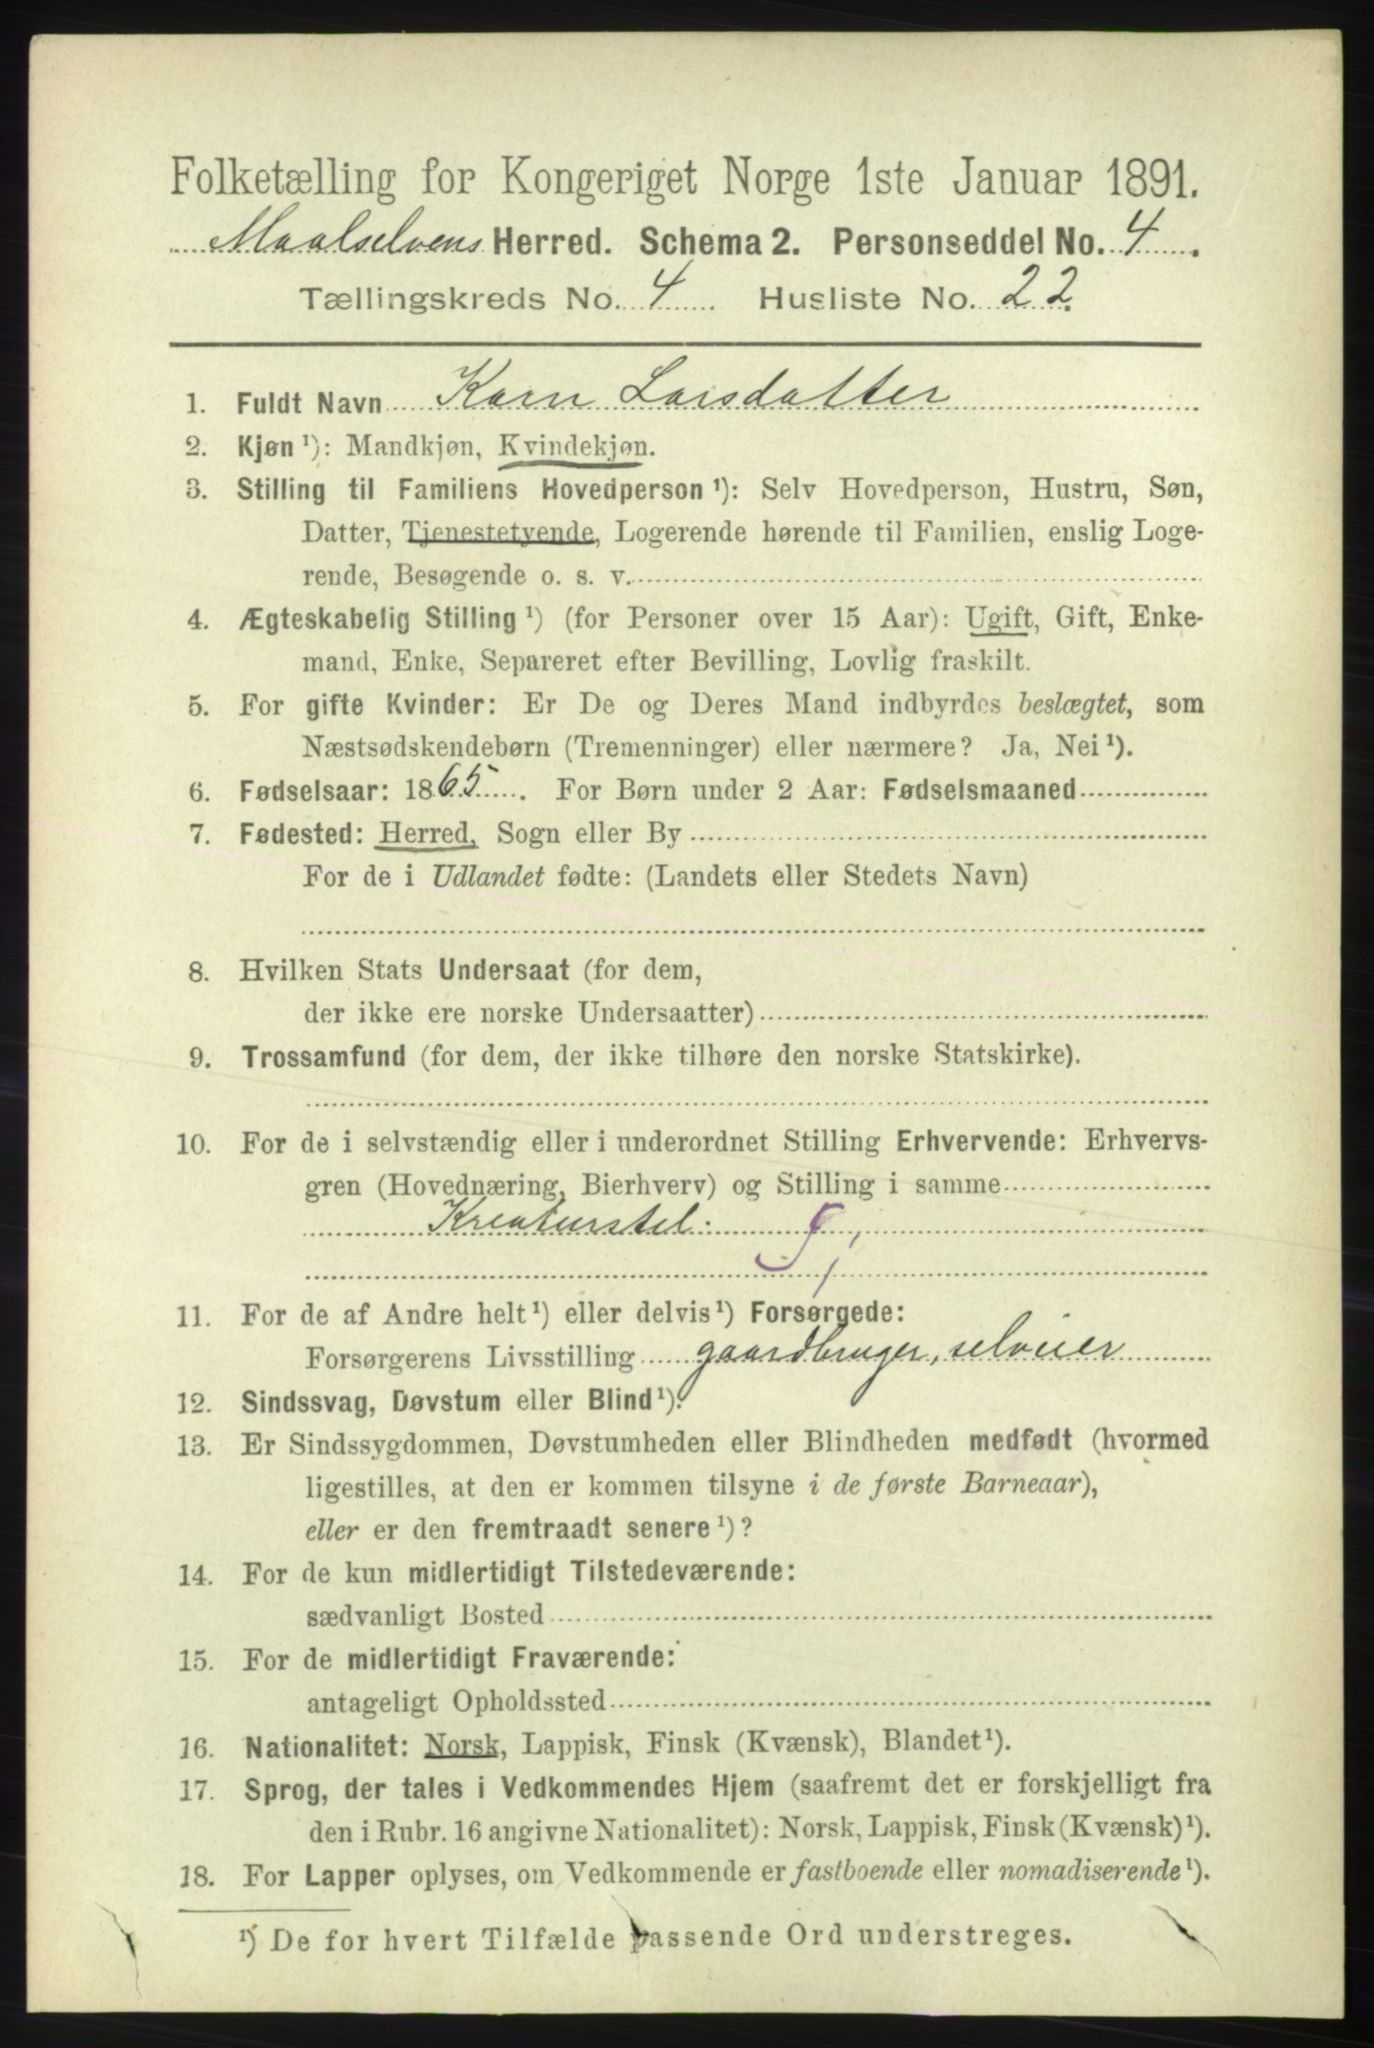 Folketælling for Kongeriget Norge 1ste Januar 1891.
Maalselvens Herred. Schema 2. Personseddel No. 4.
Tællingskreds No. 4 Husliste No. 22.
1. Fuldt Navn Karn Larsdatter
2. Kjøn ¹): Mandkjøn, Kvindekjøn.
3. Stilling til Familiens Hovedperson ¹): Selv Hovedperson, Hustru, Søn,
Datter, Tjenestetyende, Logerende hørende til Familien, enslig Loge-
rende, Besøgende o. s. v.
4. Ægteskabelig Stilling ¹) (for Personer over 15 Aar): Ugift, Gift, Enke-
mand, Enke, Separeret efter Bevilling, Lovlig fraskilt.
5. For gifte Kvinder: Er De og Deres Mand indbyrdes beslægtet, som
Næstsødskendebørn (Tremenninger) eller nærmere? Ja, Nei ¹).
6. Fødselsaar: 1865. For Børn under 2 Aar: Fødselsmaaned
7. Fødested: Herred, Sogn eller By
For de i Udlandet fødte: (Landets eller Stedets Navn)
8. Hvilken Stats Undersaat (for dem,
der ikke ere norske Undersaatter)
9. Trossamfund (for dem, der ikke tilhøre den norske Statskirke).
10. For de i selvstændig eller i underordnet Stilling Erhvervende: Erhvervs-
gren (Hovednæring, Bierhverv) og Stilling i samme
Kreaturstel:
11. For de af Andre helt ¹) eller delvis ¹) Forsørgede:
Forsørgerens Livsstilling gaardbruger, selveier
12. Sindssvag, Døvstum eller Blind ¹).
13. Er Sindssygdommen, Døvstumheden eller Blindheden medfødt (hvormed
ligestilles, at den er kommen tilsyne i de første Barneaar),
eller er den fremtraadt senere ¹)?
14. For de kun midlertidigt Tilstedeværende:
sædvanligt Bosted
15. For de midlertidigt Fraværende:
antageligt Opholdssted
16. Nationalitet: Norsk, Lappisk, Finsk (Kvænsk), Blandet ¹).
17. Sprog, der tales i Vedkommendes Hjem (saafremt det er forskjelligt fra
den i Rubr. 16 angivne Nationalitet): Norsk, Lappisk, Finsk (Kvænsk) ¹).
18. For Lapper oplyses, om Vedkommende er fastboende eller nomadiserende ¹).
¹) De for hvert Tilfælde passende Ord understreges.